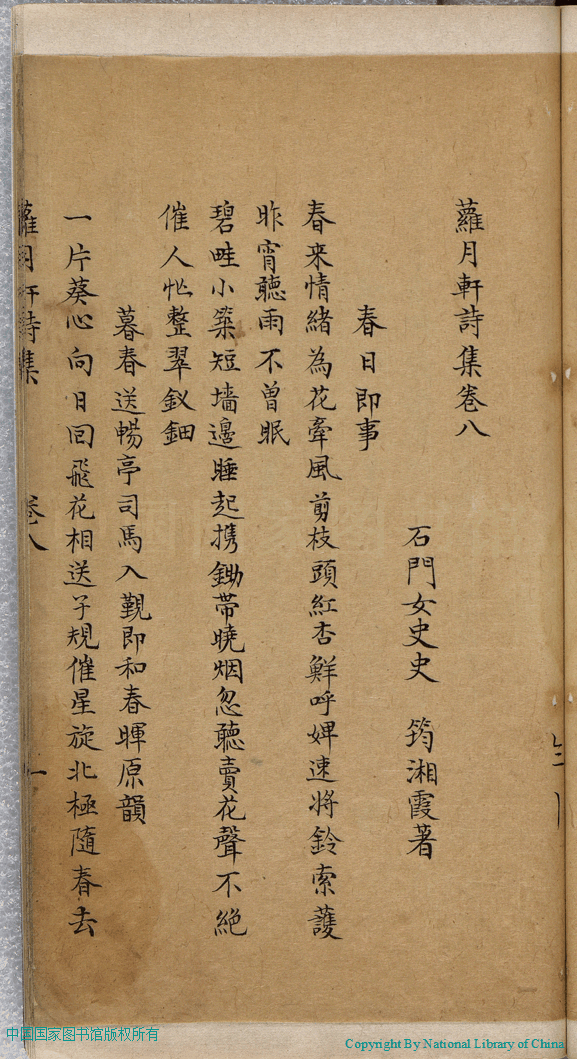 蘿月軒詩集卷八
石門女史史 筠湘霞著
春日即事
春来情緒為花牽風剪枝頭紅杏鮮呼婢速将鈴索護
昨宵聽雨不曾眠
碧畦小築短墻邊睡起携鋤帶曉烟忽聽賣花聲不絶
催人忙整翠釵鈿
暮春送暢亭司馬入覲即和春暉原韻
一片葵心向日回飛花相送子規催星旋北極隨春去
蘿月軒詩集 卷八 一
中国国家图书馆版权所有
Copyright By National Library of China